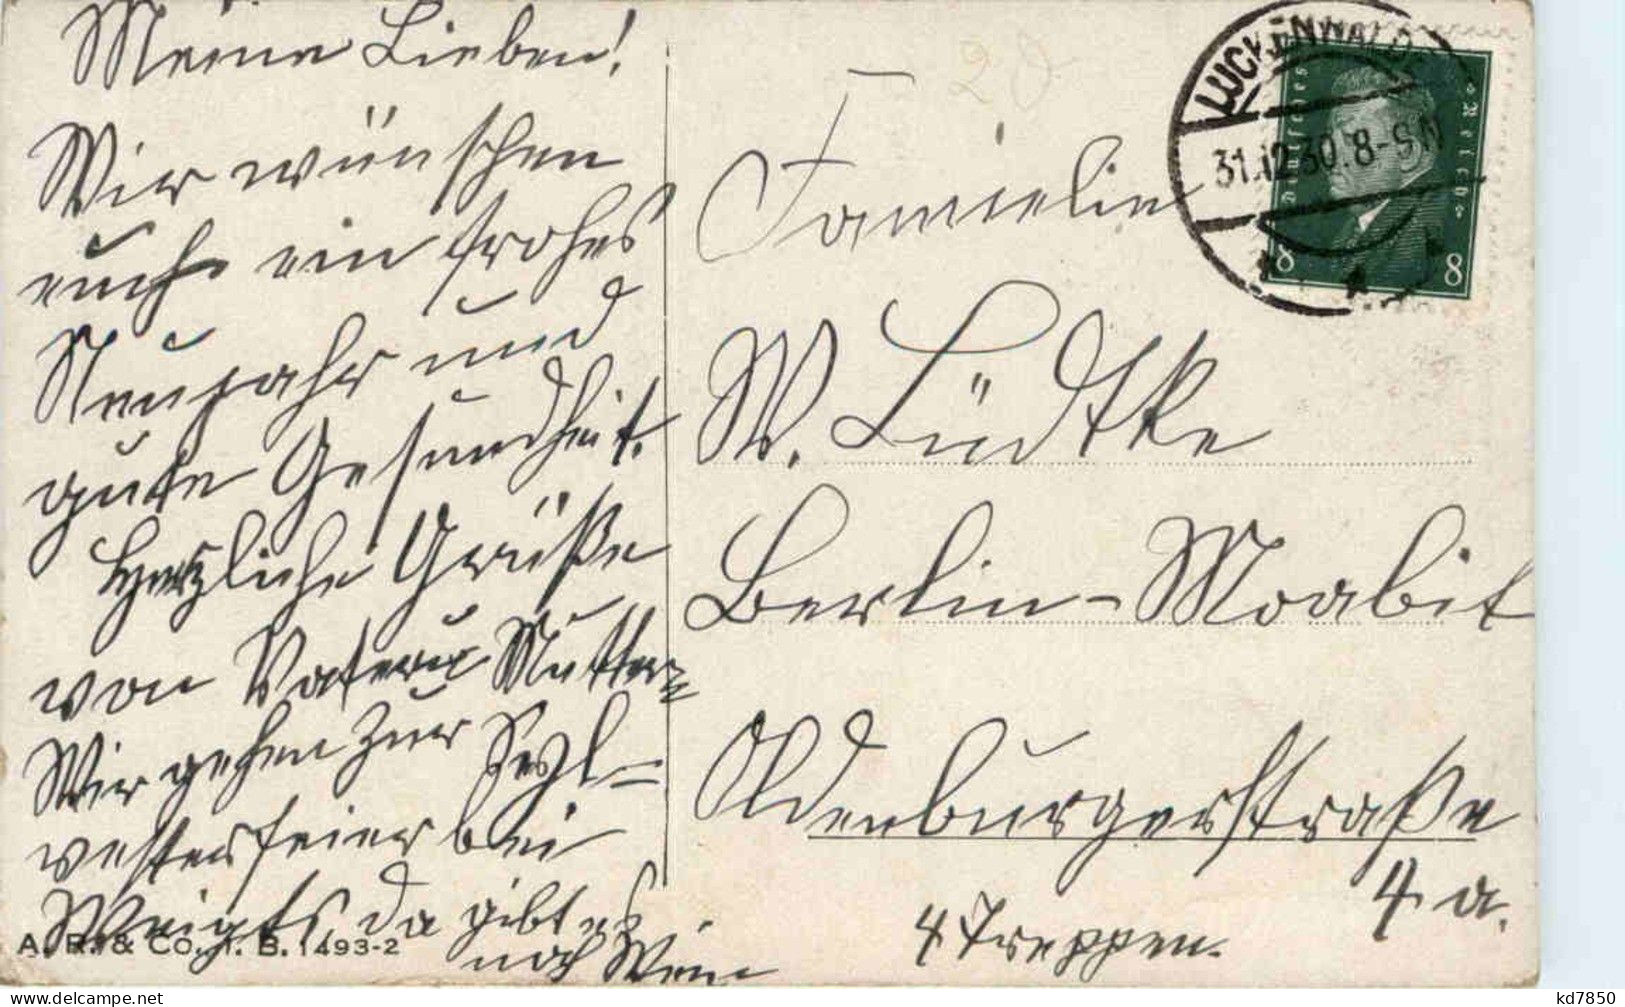 Meine Lieben!
Wir wünschen
euch ein frohes
Neujahr und
gute Gesundheit.
Herzliche Grüße
von Vater u Mutter
Wir gehen zur Syl=
vesterfeier bei
Weigts, da gibt es
noch Wein
A. R. & Co. i. B. 1493-2
20
LUCKENWALD
31.12.30. 8-9 N
Deutsches Reich
8 8
Familie
W. Lüdtke
Berlin-Moabit
Oldenburgerstraße
4 a.
4 Treppen.
kd7850